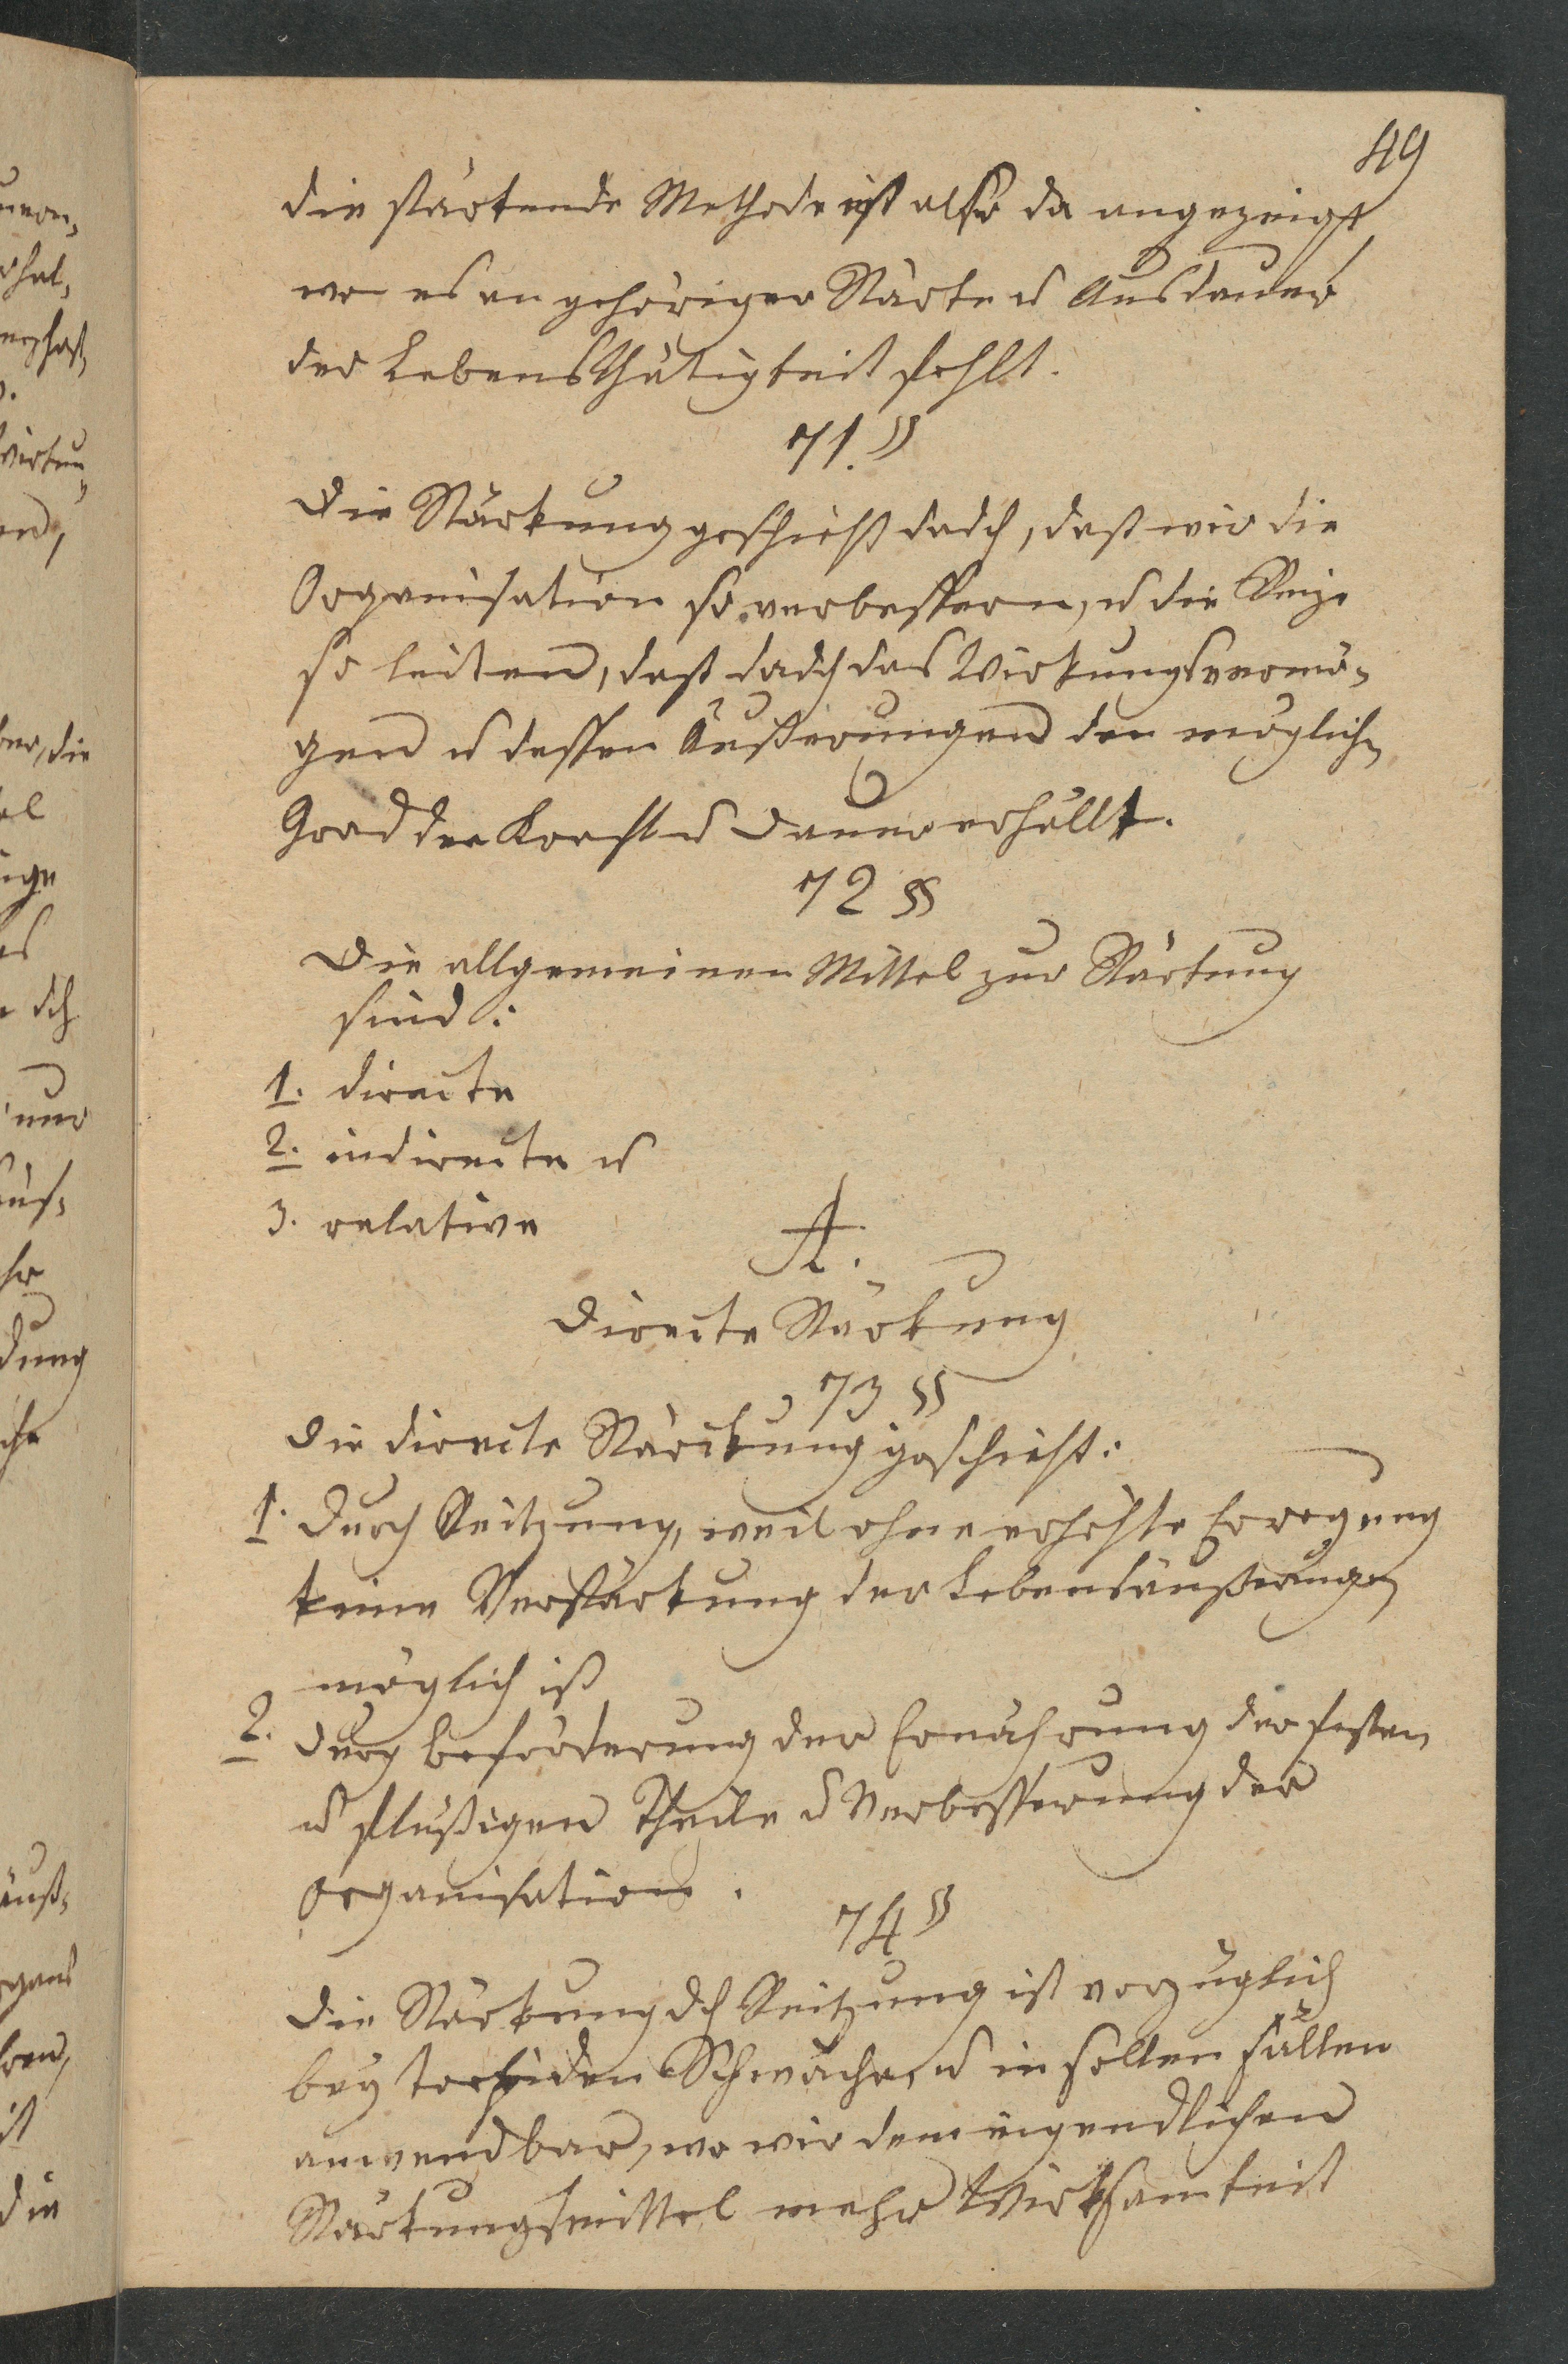 49
die stärkende Methode ist also da angezeigt
wo es an gehöriger Stärke u Ausdauer
der Lebensthätigkeit fehlt.
71. §
Die Stärkung geschieht dadch, daß wir die
Organisation so verbessern, u die Reize
so leiten, daß dadch das Wirkungsvermö-
gen u dessen Äußerungen den möglichn
Grad der Kraft u Dauer erhällt.
72 §§
Die allgemeinen Mittel zur Stärkung
sind:
1. directe
2. indirecte u
3. relative
A.
Directe Stärkung
73 §§
Die directe Stärckung geschieht:
1. Durch Reitzung, weil ohne erhöhte Erregung
keine Verstärkung der Lebensäußerungen
möglich ist
2. Durch beförderung der Ernährung der festen
u flüßigen Theile u Verbesserung der
organisation.
74 §
Die Stärkung dch Reitzung ist vorzüglich
bey torpiden Schwäche, u in sollen fällen
anwendbar, wo wir dem eigendlichen
Stärkungsmittel mehr Wirksamkeit